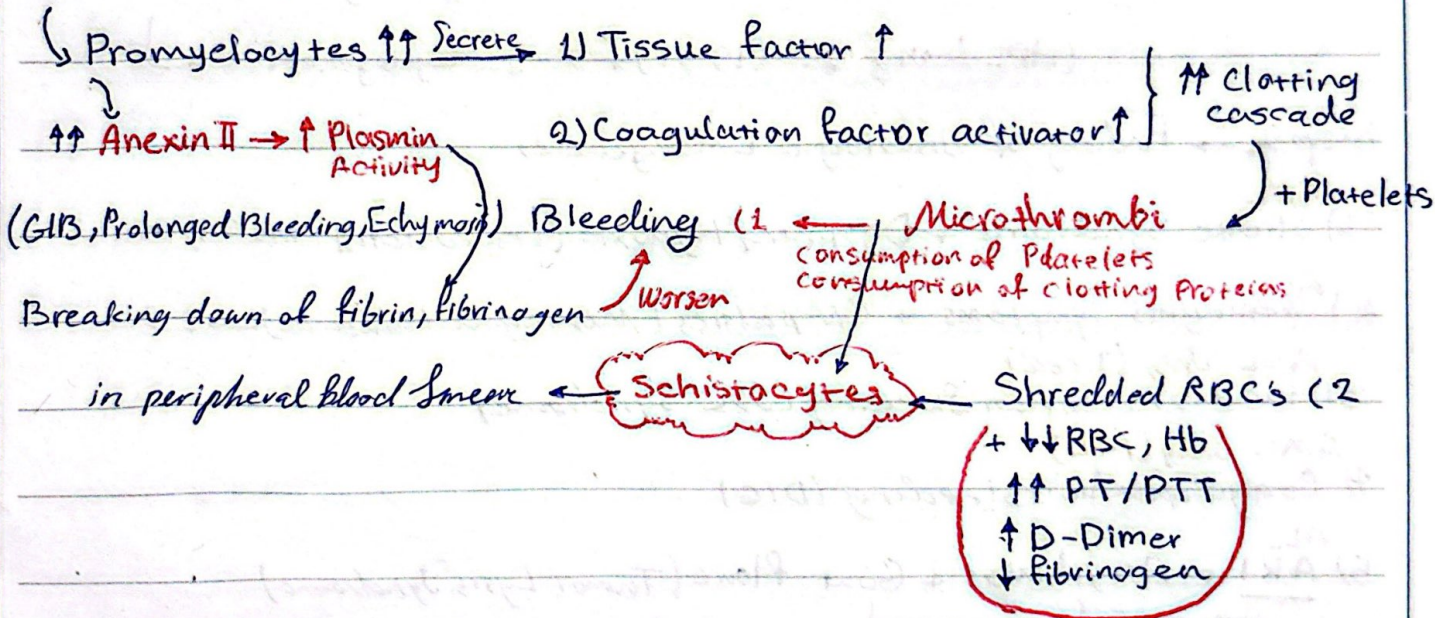 Promyelocytes ↑↑ Secrete → 1) Tissue factor ↑
↑↑ Clotting
cascade
↑↑ Anexin II → ↑ Plasmin
Activity
2) Coagulation factor activator ↑
+ Platelets
(GIB, Prolonged Bleeding, Echymosis) Bleeding (1 ← Microthrombi
Consumption of Pdatelets
Consumption of clotting Proteins
Breaking down of fibrin, fibrinogen Worsen
in peripheral blood Smear ← Schistocytes ← Shredded RBC's (2
+ ↓↓ RBC, Hb
↑↑ PT/PTT
↑ D-Dimer
↓ fibrinogen